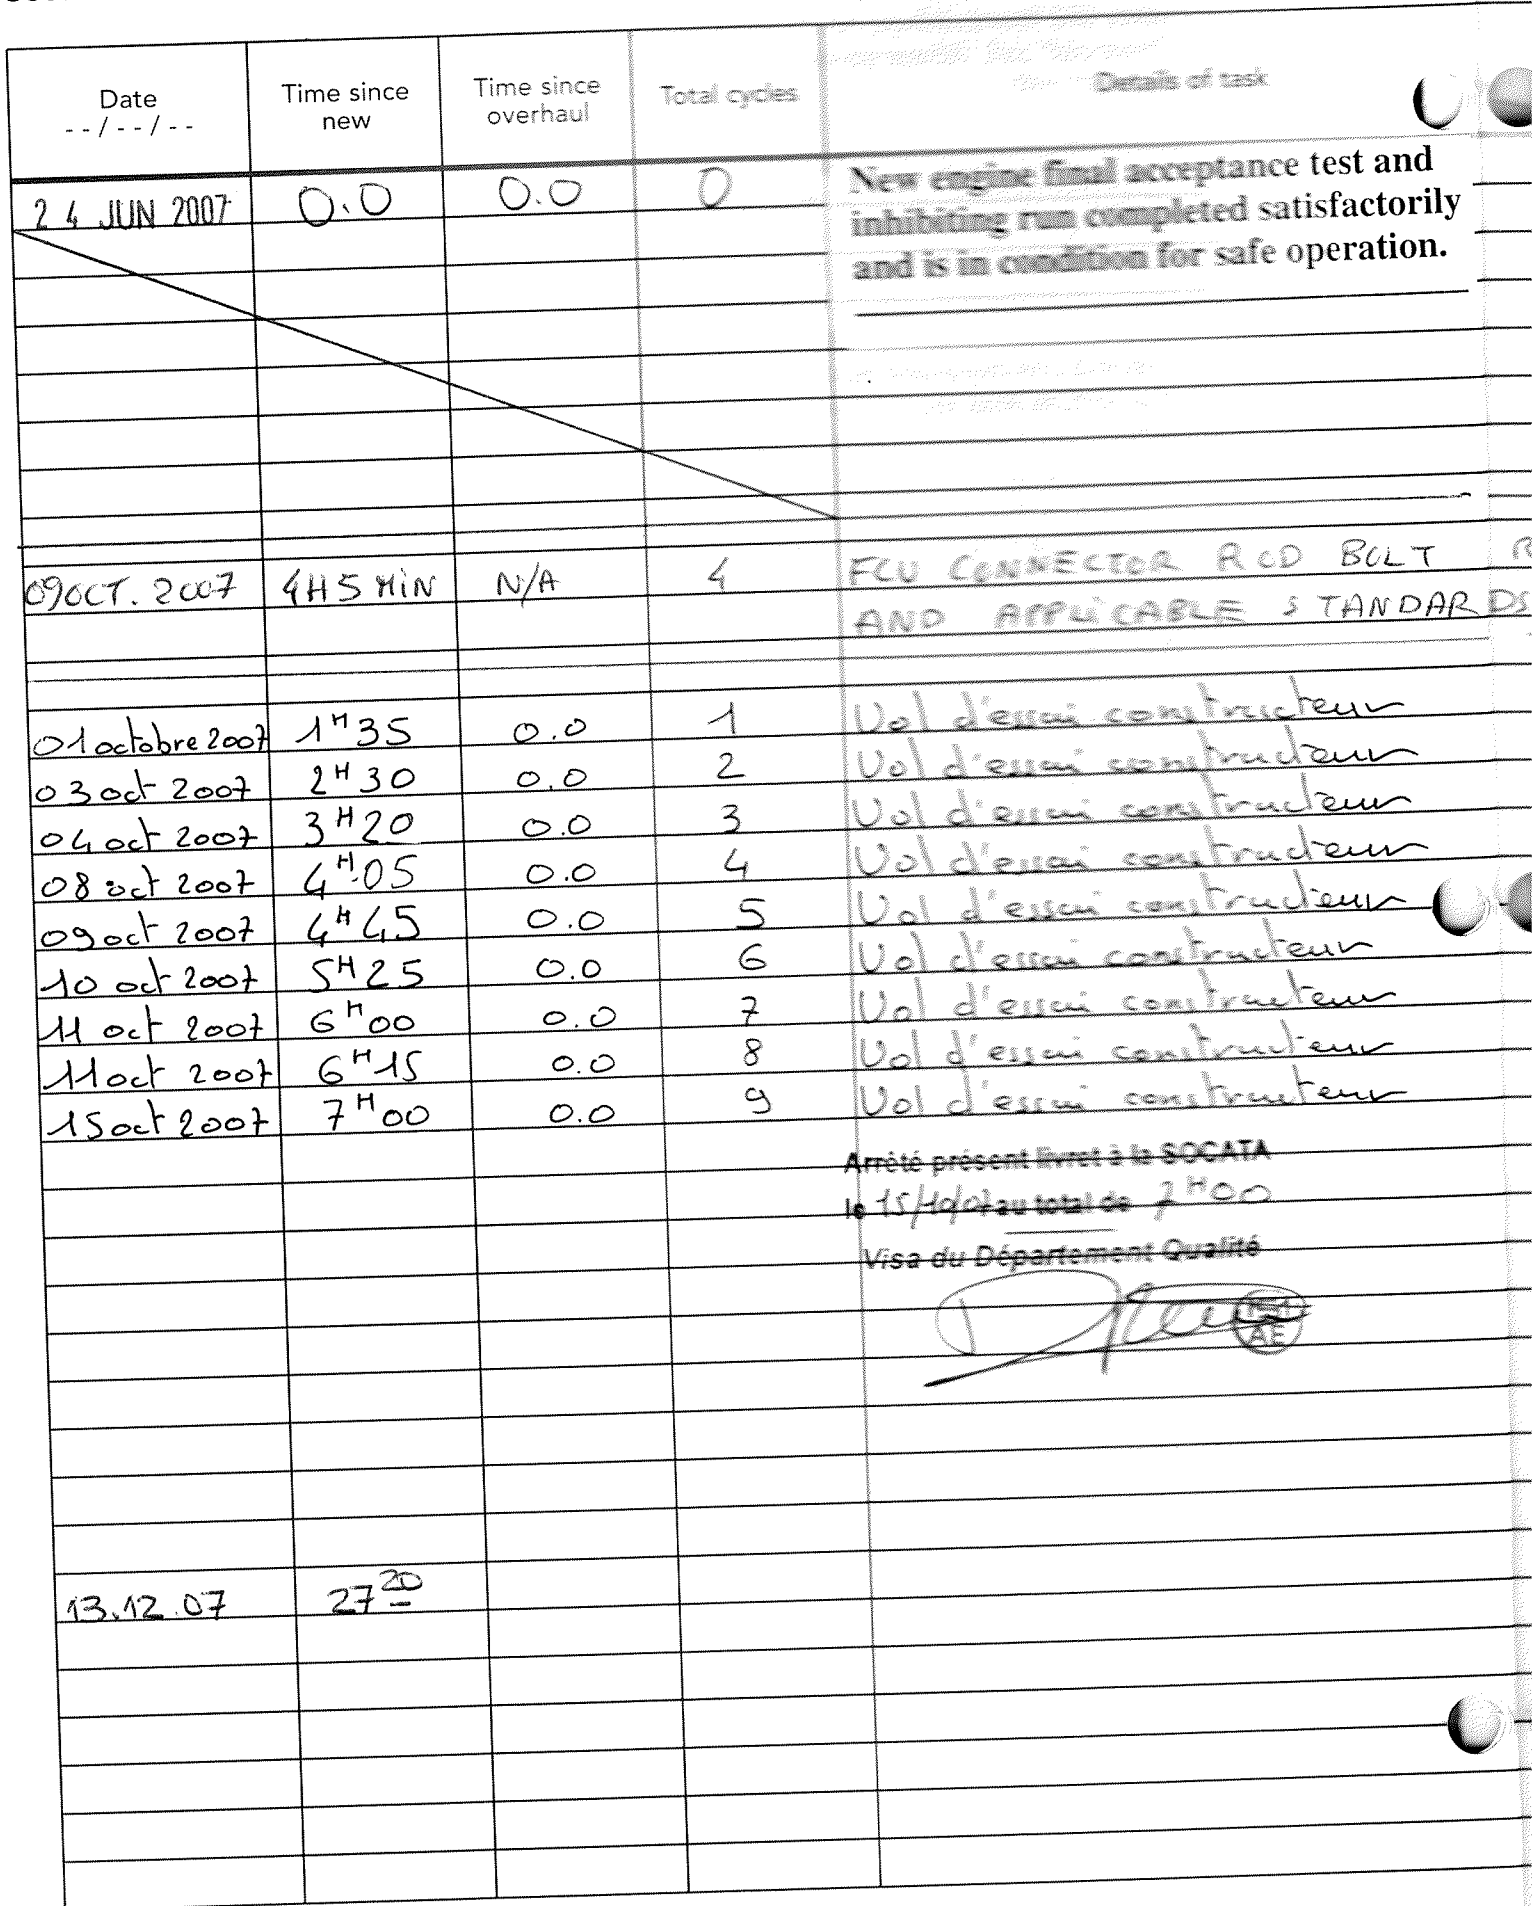 Date
--/--/--
Time since
new
Time since
overhaul
Total cycles
Details of task
24 JUN 2007 0.0 0.0 0 New engine final acceptance test and
inhibiting run completed satisfactorily
and is in condition for safe operation.
09 OCT. 2007 4H5 MIN N/A 4 FCU CONNECTOR ROD BOLT R
AND APPLICABLE STANDARDS
01 octobre 2007 1H35 0.0 1 Vol d'essai constructeur
03 oct 2007 2H30 0.0 2 Vol d'essai constructeur
04 oct 2007 3H20 0.0 3 Vol d'essai constructeur
08 oct 2007 4H05 0.0 4 Vol d'essai constructeur
09 oct 2007 4H45 0.0 5 Vol d'essai constructeur
10 oct 2007 5H25 0.0 6 Vol d'essai constructeur
11 oct 2007 6H00 0.0 7 Vol d'essai constructeur
11 oct 2007 6H15 0.0 8 Vol d'essai constructeur
15 oct 2007 7H00 0.0 9 Vol d'essai constructeur
Arrêté présent livret à la SOCATA
le 15/10/07 au total de 7H00
Visa du Département Qualité
AE
13.12.07 27 20